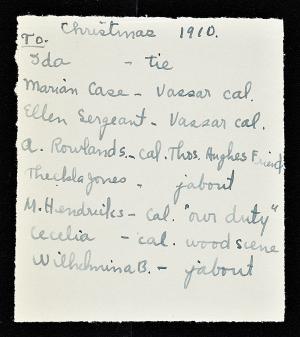 Christmas 1910.
To.
Ida - tie
Marian Case - Vassar cal.
Ellen Sergeant - Vassar cal.
A. Rowlands. - cal. Thos. Hughes Friend
Theckla Jones - jabout
M. Hendriks - Cal. "our duty"
Cecelia - cal. wood scene
Wilhelmina B. - jabout